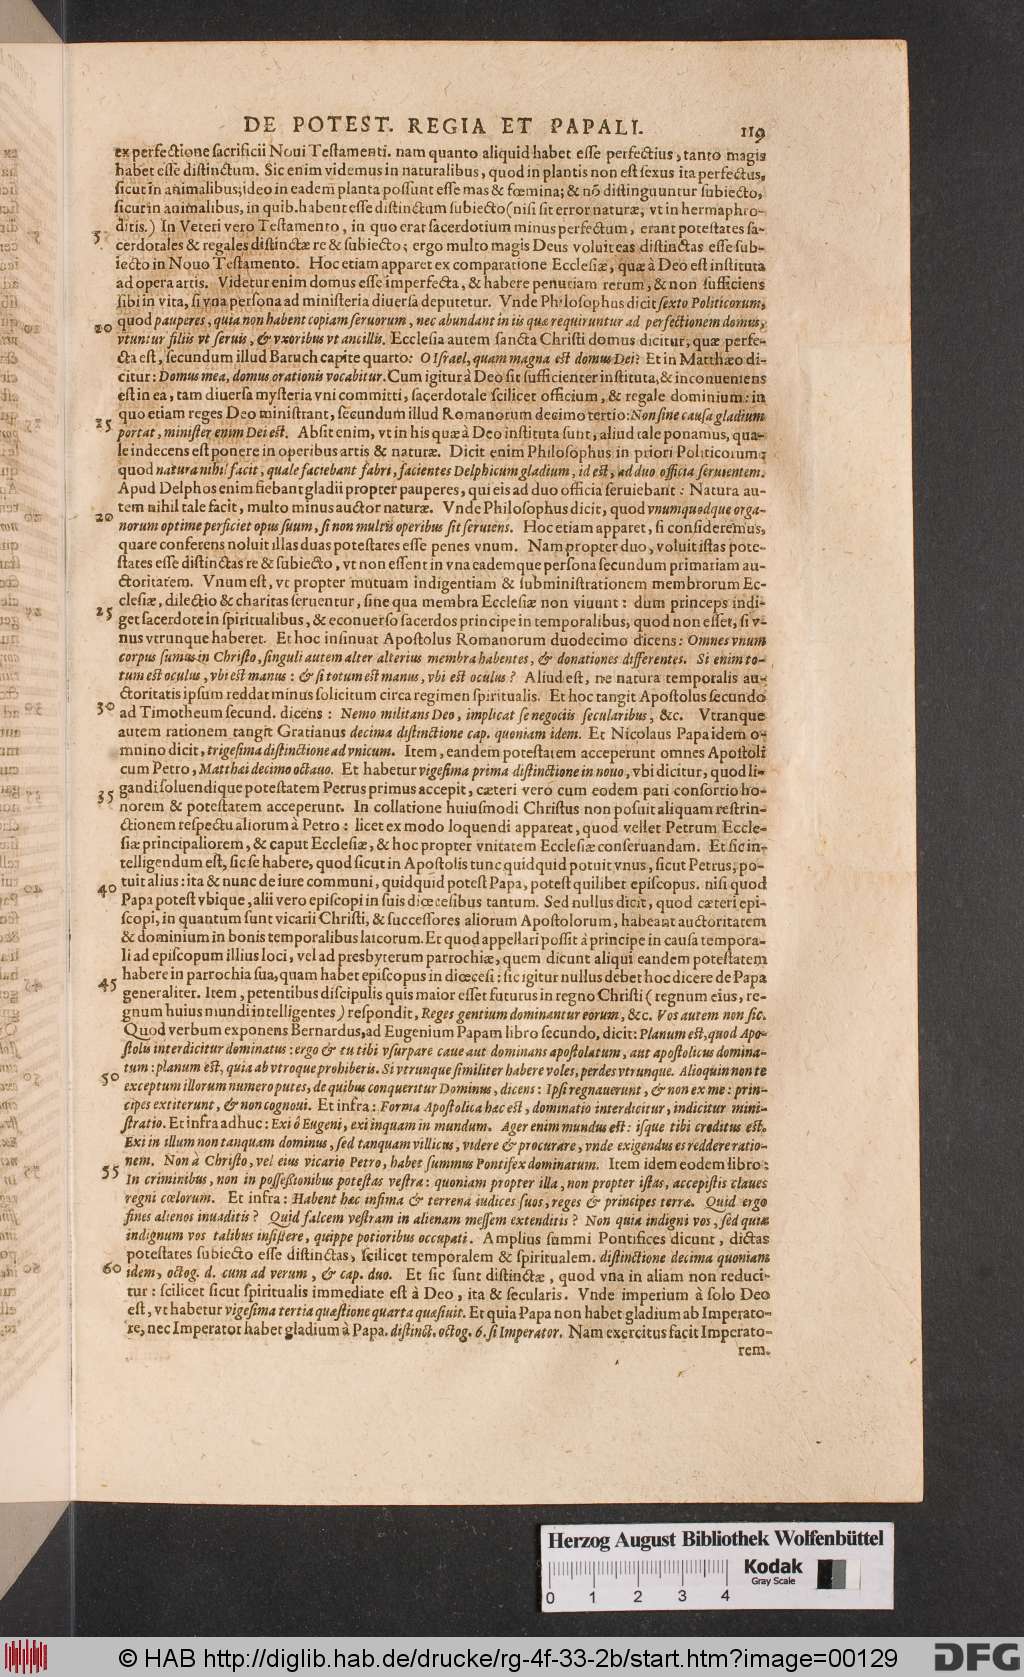 DE POTEST. REGIA ET PAPALI. 119
ex perfectione sacrificii Noui Testamenti. nam quanto aliquid habet esse perfectius, tanto magis
habet esse distinctum. Sic enim videmus in naturalibus, quod in plantis non est sexus ita perfectus,
sicut in animalibus; ideo in eadem planta possunt esse mas & fœmina; & nõ distinguuntur subiecto,
sicut in animalibus, in quib. habent esse distinctum subiecto (nisi sit error naturæ, vt in hermaphro-
ditis.) In Veteri vero Testamento, in quo erat sacerdotium minus perfectum, erant potestates sa-
5 cerdotales & regales distinctæ re & subiecto; ergo multo magis Deus voluit eas distinctas esse sub-
iecto in Nouo Testamento. Hoc etiam apparet ex comparatione Ecclesiæ, quæ à Deo est instituta
ad opera artis. Videtur enim domus esse imperfecta, & habere penuriam rerum, & non sufficiens
sibi in vita, si vna persona ad ministeria diuersa deputetur. Vnde Philosophus dicit sexto Politicorum,
20 quod pauperes, quia non habent copiam seruorum, nec abundant in iis quæ requiruntur ad perfectionem domus,
vtuntur filiis vt seruis, & vxoribus vt ancillis. Ecclesia autem sancta Christi domus dicitur, quæ perfe-
cta est, secundum illud Baruch capite quarto: O Israel, quam magna est domus Dei? Et in Matthæo di-
citur: Domus mea, domus orationis vocabitur. Cum igitur à Deo sit sufficienter instituta, & inconueniens
est in ea, tam diuersa mysteria vni committi, sacerdotale scilicet officium, & regale dominium: in
quo etiam reges Deo ministrant, secundum illud Romanorum decimo tertio: Non sine causa gladium
25 portat, minister enim Dei est. Absit enim, vt in his quæ à Deo instituta sunt, aliud tale ponamus, qua-
le indecens est ponere in operibus artis & naturæ. Dicit enim Philosophus in priori Politicorum;
quod natura nihil facit, quale faciebant fabri, facientes Delphicum gladium, id est, ad duo officia seruientem.
Apud Delphos enim fiebant gladii propter pauperes, qui eis ad duo officia seruiebant: Natura au-
tem nihil tale facit, multo minus auctor naturæ. Vnde Philosophus dicit, quod vnumquodque orga-
20 norum optime perficiet opus suum, si non multis operibus sit seruiens. Hoc etiam apparet, si consideremus,
quare conferens noluit illas duas potestates esse penes vnum. Nam propter duo, voluit istas pote-
states esse distinctas re & subiecto, vt non essent in vna eademque persona secundum primariam au-
ctoritatem. Vnum est, vt propter mutuam indigentiam & subministrationem membrorum Ec-
clesiæ, dilectio & charitas seruentur, sine qua membra Ecclesiæ non viuunt: dum princeps indi-
25 get sacerdote in spiritualibus, & econuerso sacerdos principe in temporalibus, quod non esset, si v-
nus vtrunque haberet. Et hoc insinuat Apostolus Romanorum duodecimo dicens: Omnes vnum
corpus sumus in Christo, singuli autem alter alterius membra habentes, & donationes differentes. Si enim to-
tum est oculus, vbi est manus: & si totum est manus, vbi est oculus? Aliud est, ne natura temporalis au-
ctoritatis ipsum reddat minus solicitum circa regimen spiritualis. Et hoc tangit Apostolus secundo
30 ad Timotheum secund. dicens: Nemo militans Deo, implicat se negociis secularibus, &c. Vtranque
autem rationem tangit Gratianus decima distinctione cap. quoniam idem. Et Nicolaus Papa idem o-
mnino dicit, trigesima distinctione ad vnicum. Item, eandem potestatem acceperunt omnes Apostoli
cum Petro, Matthai decimo octauo. Et habetur vigesima prima distinctione in nouo, vbi dicitur, quod li-
gandi soluendique potestatem Petrus primus accepit, cæteri vero cum eodem pari consortio ho-
35 norem & potestatem acceperunt. In collatione huiusmodi Christus non posuit aliquam restrin-
ctionem respectu aliorum à Petro: licet ex modo loquendi appareat, quod vellet Petrum Eccle-
siæ principaliorem, & caput Ecclesiæ, & hoc propter vnitatem Ecclesiæ conseruandam. Et sic in-
telligendum est, sic se habere, quod sicut in Apostolis tunc quidquid potuit vnus, sicut Petrus, po-
40 tuit alius: ita & nunc de iure communi, quidquid potest Papa, potest quilibet episcopus. nisi quod
Papa potest vbique, alii vero episcopi in suis diœcesibus tantum. Sed nullus dicit, quod cæteri epi-
scopi, in quantum sunt vicarii Christi, & successores aliorum Apostolorum, habeant auctoritatem
& dominium in bonis temporalibus laicorum. Et quod appellari possit à principe in causa tempora-
li ad episcopum illius loci, vel ad presbyterum parrochiæ, quem dicunt aliqui eandem potestatem
habere in parrochia sua, quam habet episcopus in diœcesi: sic igitur nullus debet hoc dicere de Papa
45 generaliter. Item, petentibus discipulis quis maior esset futurus in regno Christi (regnum eius, re-
gnum huius mundi intelligentes) respondit, Reges gentium dominantur eorum, &c. Vos autem non sic.
Quod verbum exponens Bernardus, ad Eugenium Papam libro secundo, dicit: Planum est, quod Apo-
stolis interdicitur dominatus: ergo & tu tibi vsurpare caue aut dominans apostolatum, aut apostolicus domina-
tum: planum est, quia ab vtroque prohiberis. Si vtrunque similiter habere voles, perdes vtrunque. Alioquin non te
50 exceptum illorum numero putes, de quibus conqueritur Dominus, dicens: Ipsi regnauerunt, & non ex me: prin-
cipes extiterunt, & non cognoui. Et infra: Forma Apostolica hæc est, dominatio interdicitur, indicitur mini-
stratio. Et infra adhuc: Exi ô Eugeni, exi inquam in mundum. Ager enim mundus est: isque tibi creditus est.
Exi in illum non tanquam dominus, sed tanquam villicus, videre & procurare, vnde exigendus es reddere ratio-
nem. Non à Christo, vel eius vicario Petro, habet summus Pontifex dominatum. Item idem eodem libro:
55 In criminibus, non in possessionibus potestas vestra: quoniam propter illa, non propter istas, accepistis claues
regni cœlorum. Et infra: Habent hæc infima & terrena iudices suos, reges & principes terræ. Quid ergo
fines alienos inuaditis? Quid falcem vestram in alienam messem extenditis? Non quia indigni vos, sed quia
indignum vos talibus insistere, quippe potioribus occupati. Amplius summi Pontifices dicunt, dictas
potestates subiecto esse distinctas, scilicet temporalem & spiritualem. distinctione decima quoniam
60 idem, octog. d. cum ad verum, & cap. duo. Et sic sunt distinctæ, quod vna in aliam non reduci-
tur: scilicet sicut spiritualis immediate est à Deo, ita & secularis. Vnde imperium à solo Deo
est, vt habetur vigesima tertia quæstione quarta quæsiuit. Et quia Papa non habet gladium ab Imperato-
re, nec Imperator habet gladium à Papa. distinct. octog. 6. si Imperator. Nam exercitus facit Imperato-
rem.
Herzog August Bibliothek Wolfenbüttel
Kodak
Gray Scale
0 1 2 3 4
© HAB http://diglib.hab.de/drucke/rg-4f-33-2b/start.htm?image=00129
DFG